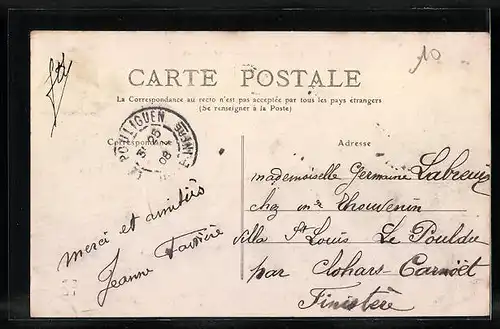 10
CARTE POSTALE
La Correspondance au recto n'est pas acceptée par tous les pays étrangers
(Se renseigner à la Poste)
Correspondance
Adresse
POULIGUEN
31 08
mademoiselle Germaine
chez Mme Thouvenin
villa St Louis Le Pouldu
par Clohars-Carnoët
Finistère
merci et amitiés
Jeanne